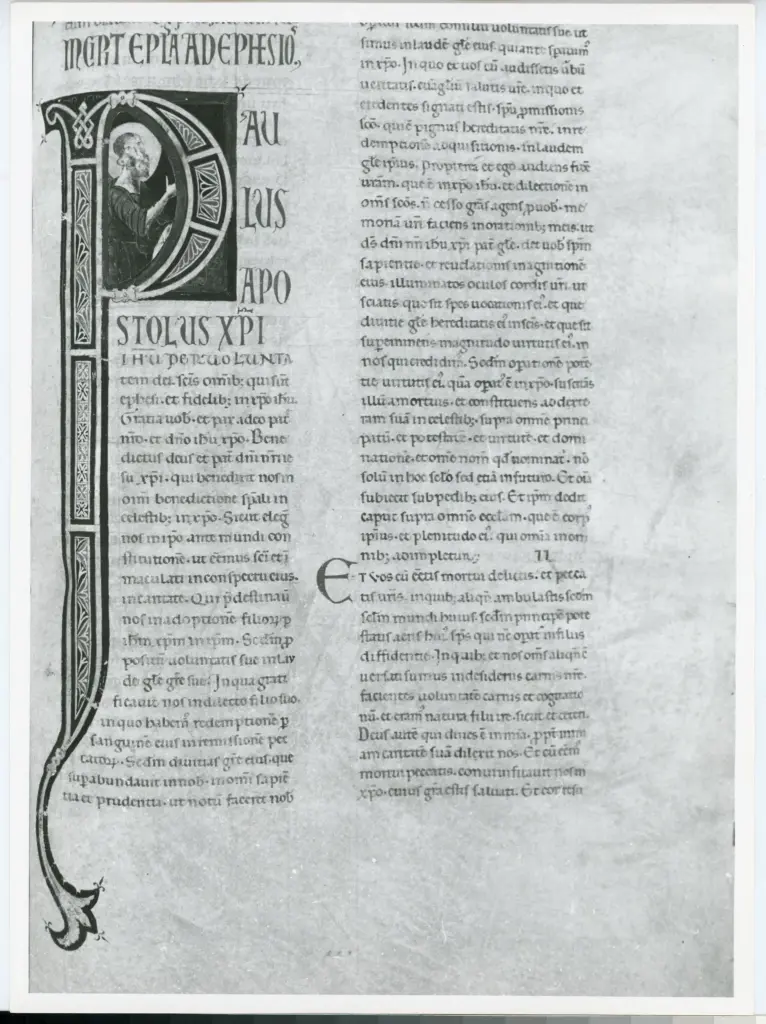 INCIPIT EPLA AD EPHESIOS.
PAU
LUS
APO
STOLUS XPI
IHU PER UOLUNTA
tem dei. scis omib; qui sūt
ephesi. et fidelib; in xpo ihu.
Gratia uob. et pax a deo pat
nro. et dno ihu xpo. Bene
dictus deus et pat dni nri ie
su xpi. qui benedixit nos in
omi benedictione spali in
celestib; in xpo. Sicut eleg
nos in ipo ante mundi con
stitutione. ut essemus sci et i
maculati in conspectu eius.
in caritate. Qui pdestinau
nos in adoptione filioꝝ p
ihm xpm in ipm. Scdm p
positu uoluntatis sue in lau
de gle gre sue. In qua grati
ficauit nos in dilecto filio suo.
in quo habem redemptione p
sanguine eius in remissione pec
catoꝝ. Scdm diuitias gre eius. que
supabundauit in nob. in omi sapie
tia et prudentia. ut notu faceret nob
simus in laude gle eius. qui ante spauim
in xpo. In quo et uos cu audissetis ubu
ueritatis. euagliu salutis ure. in quo et
credentes signati estis. spu pmissionis
sco. qui e pignus hereditatis nre. in re
demptione adquisitionis. in laudem
gle ipius. Propterea et ego audiens fide
uram. que e in xpo ihu. et dilectione in
oms scos. n cesso gras agens p uob. me
moria uri faciens in orationib; meis. ut
ds dni nri ihu xpi pat gle. det uob spm
sapientie. et reuelationis in agnitione
eius. illuminatos oculos cordis uri. ut
sciatis. que sit spes uocationis ei. et que
diuitie gle hereditatis ei in scis. et que sit
supeminens magnitudo uirtutis ei. in
nos qui credidim. Scdm opatione pote
tie uirtutis ei. qua opat e in xpo. suscitas
illu a mortuis. et constituens ad dexte
ram sua in celestib; supra omne princi
patu. et potestate. et uirtute. et domi
natione. et ome nom qd nominat. no
solu in hoc sclo sed etia in futuro. Et oia
subiecit sub pedib; eius. Et ipm dedit
caput supra omne ecclam. que e corp
ipius. et plenitudo ei. qui omia in om
nib; adimpletur;
II
Et uos cu essetis mortui delictis. et pecca
tis uris. in quib; aliqn ambulastis scdm
sclm mundi huius. scdm principe pote
statis aeris hui. sps qui nc opat in filius
diffidentie. In quib; et nos oms aliqn c
uersati sumus in desideriis carnis nre.
facientes uoluntate carnis et cogitatio
nu. et eram natura filii ire. sicut et ceteri.
Deus aute qui diues e in mia. ppt nimi
am caritate sua dilexit nos. Et cu esem
mortui peccatis. conuiuificauit nos in
xpo. cuius gra estis saluati. Et con resu